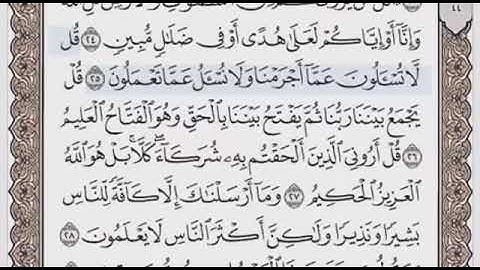 وَإِنَّآ أَوْ إِيَّاكُمْ لَعَلَىٰ هُدًى أَوْ فِى ضَلَٰلٍ مُّبِينٍ ٢٤ قُل
لَّا تُسْـَٔلُونَ عَمَّآ أَجْرَمْنَا وَلَا نُسْـَٔلُ عَمَّا تَعْمَلُونَ ٢٥ قُلْ
يَجْمَعُ بَيْنَنَا رَبُّنَا ثُمَّ يَفْتَحُ بَيْنَنَا بِٱلْحَقِّ وَهُوَ ٱلْفَتَّاحُ ٱلْعَلِيمُ
٢٦ قُلْ أَرُونِىَ ٱلَّذِينَ أَلْحَقْتُم بِهِۦ شُرَكَآءَ ۖ كَلَّا ۚ بَلْ هُوَ ٱللَّهُ
ٱلْعَزِيزُ ٱلْحَكِيمُ ٢٧ وَمَآ أَرْسَلْنَٰكَ إِلَّا كَآفَّةً لِّلنَّاسِ
بَشِيرًا وَنَذِيرًا وَلَٰكِنَّ أَكْثَرَ ٱلنَّاسِ لَا يَعْلَمُونَ ٢٨